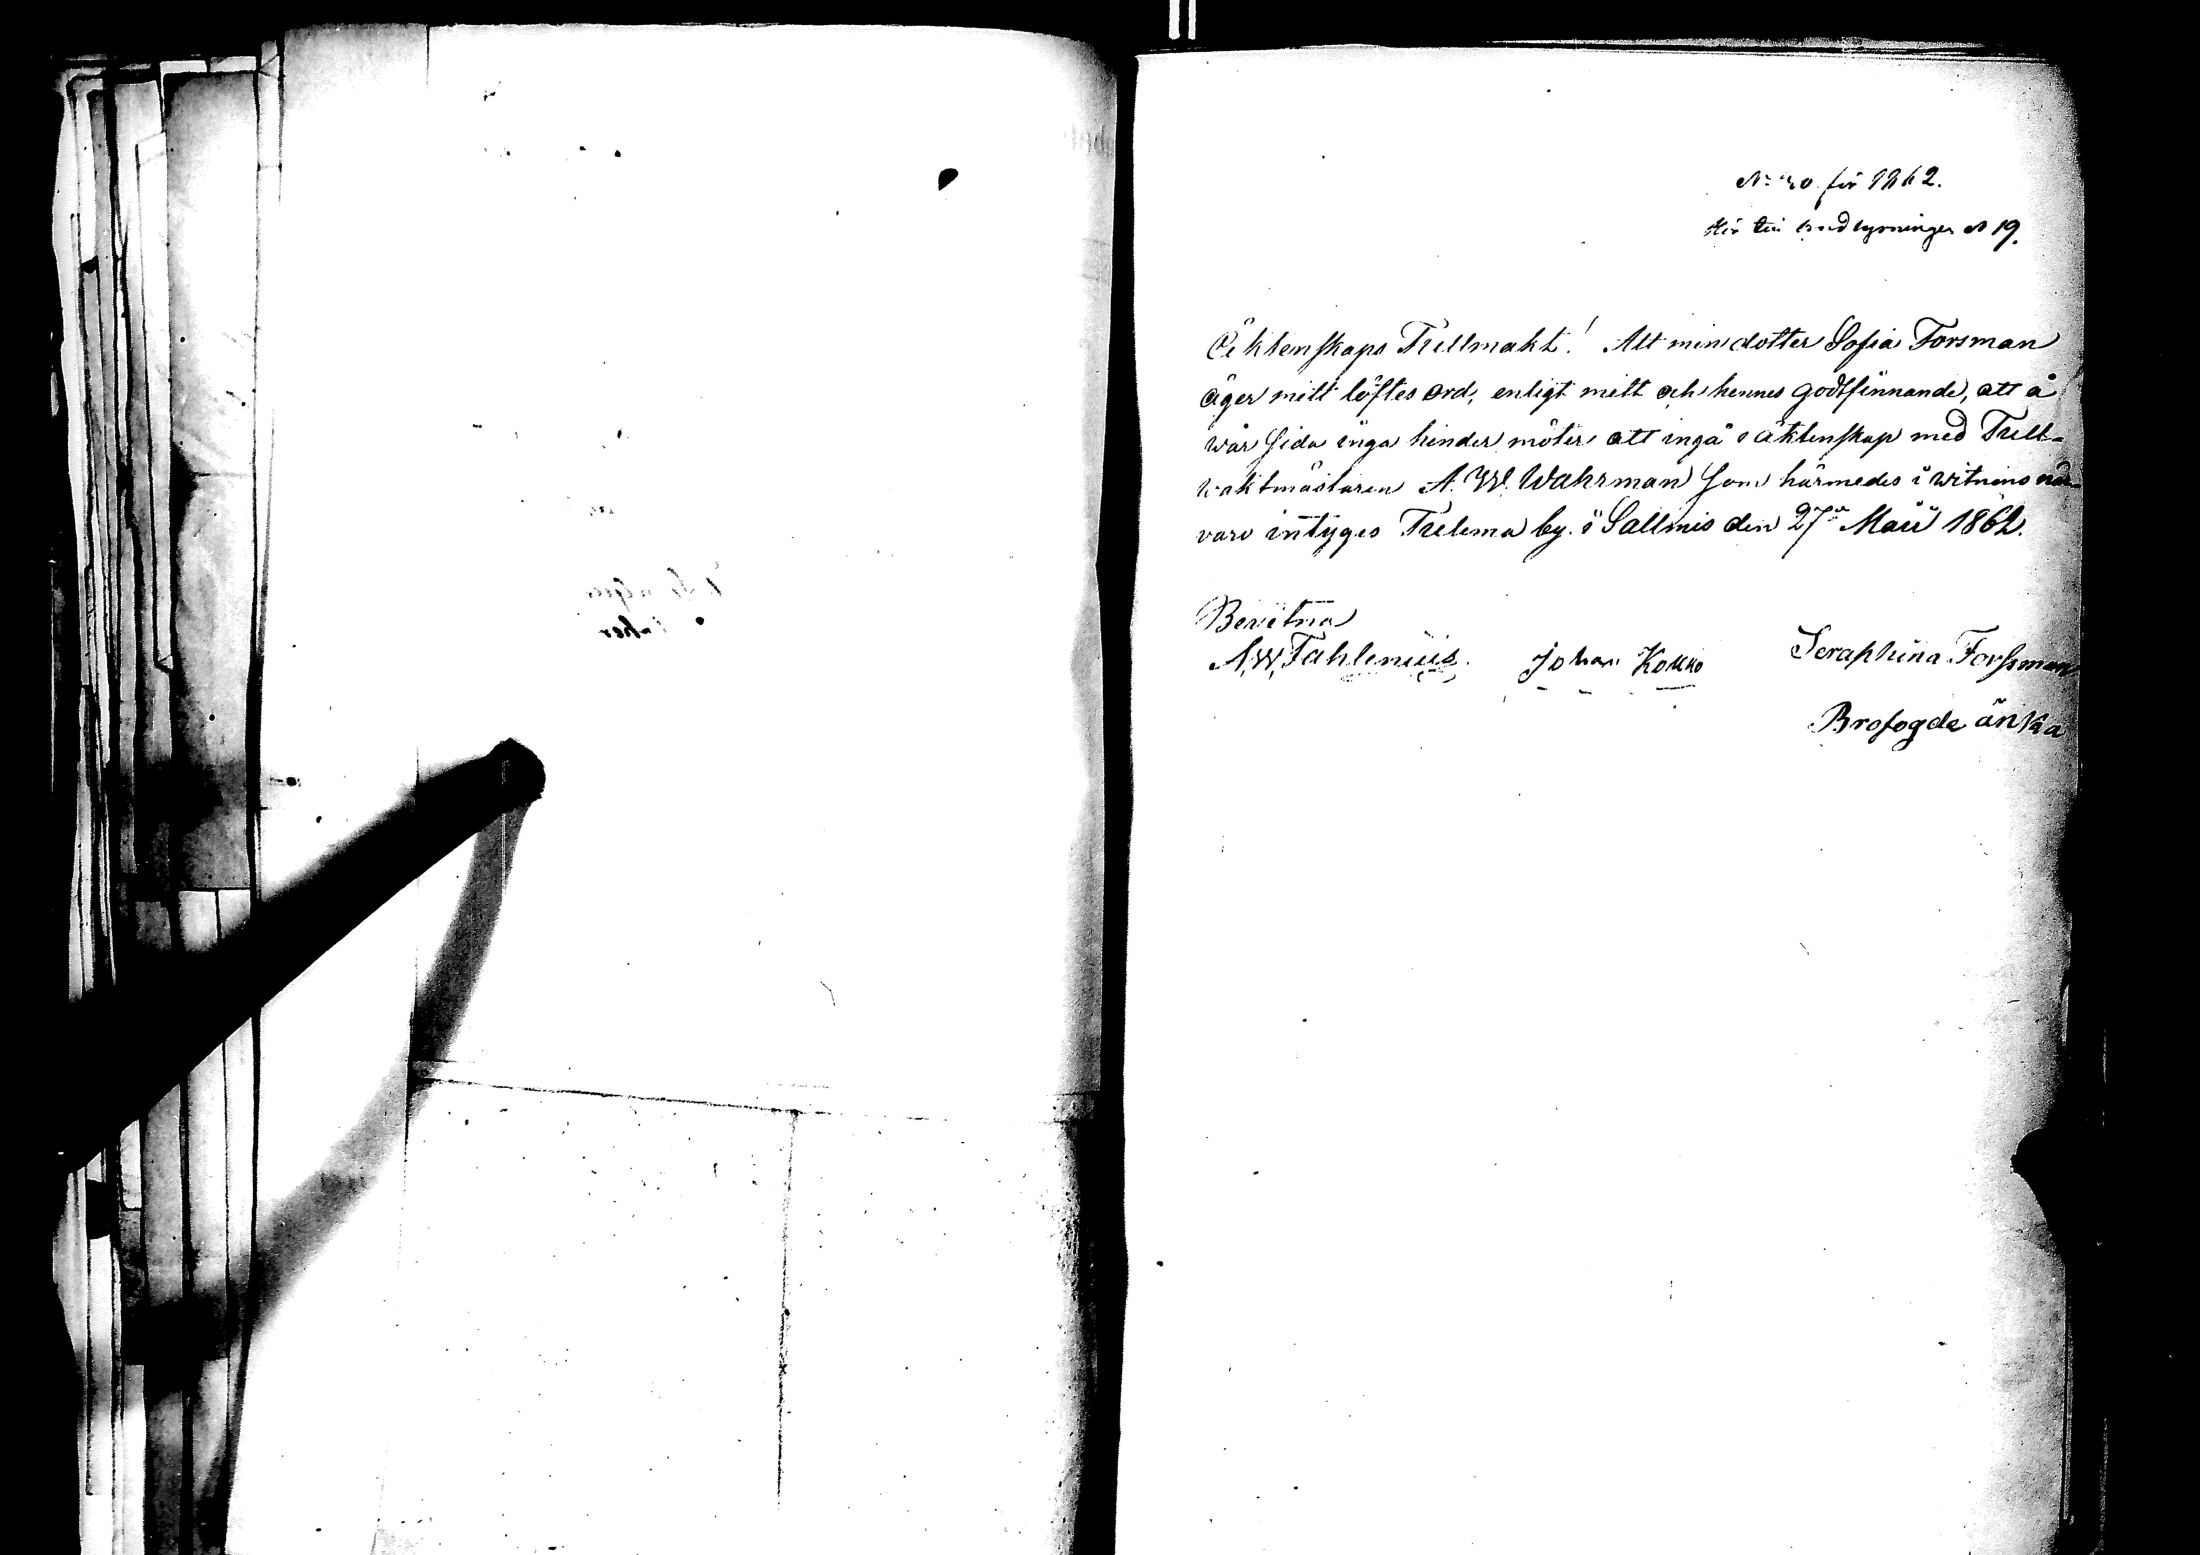 för 1862.
№ 19.
Äktenskaps Fullmakt! Att min dotter Sofia Forsman
äger mitt löftes ord, enligt mitt och hennes godtfinnande, att å
wår sida inga hinder möter att ingå i äktenskap med Tull-
waktmästaren A. W. Wahrman som härmedes i witnens när-
varo intyges Tulema by. i Sallmis den 27de Maii 1862.
Bevitna
A. W. Fahlenius. Johan Kokko Seraphina Forssman
Brofogde änka